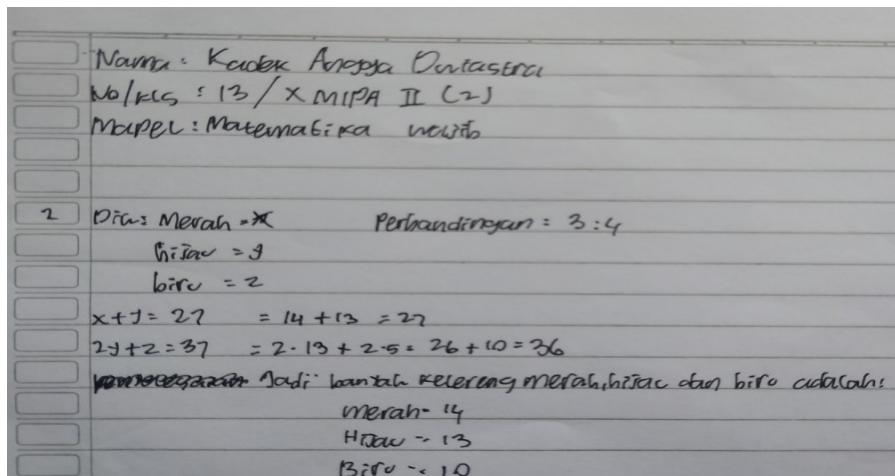 Nama : Kadek Angga Dwiastra
No/kls : 13 / X MIPA II (2)
Mapel : Matematika wajib
2 Dik : Merah = x Perbandingan = 3 : 4
hijau = y
biru = z
x + y = 27 = 14 + 13 = 27
2y + z = 37 = 2 · 13 + 2 · 5 = 26 + 10 = 36
Jadi banyak kelereng merah, hijau dan biru adalah :
merah = 14
Hijau = 13
Biru = 10